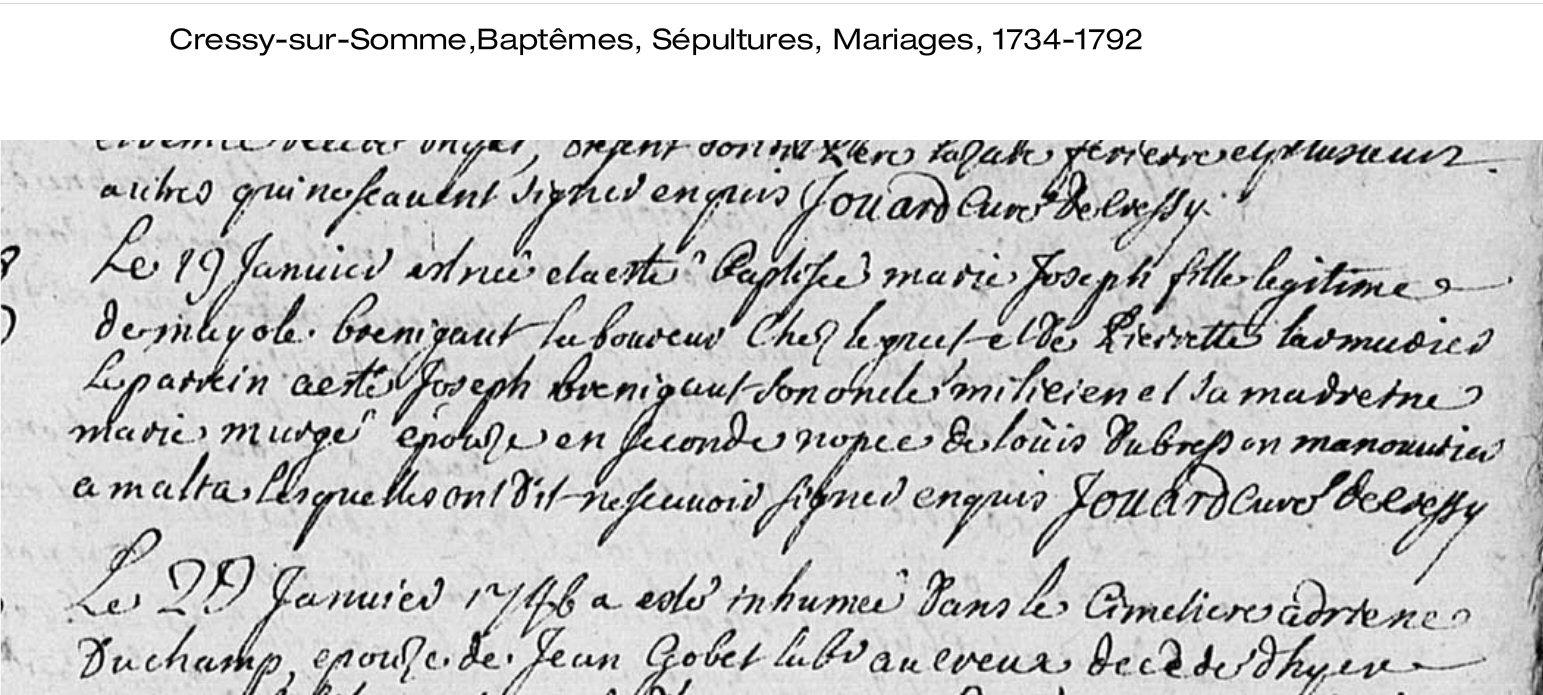 Cressy-sur-Somme,Baptêmes, Sépultures, Mariages, 1734-1792
present
autres qui ne scavent signer enquis Jouard Curé de Cressy.
Le 19 Janvier est née et a esté Baptisée marie Joseph fille legitime
de brenigaut laboureur Chez et de Pierrette
Le parrein a esté Joseph brenigaut son oncle milicien et sa madreine
marie murge épouze en seconde nopce de loüis Dubresson manouvrier
a malta lesquelles ont dit ne scavoir signer enquis Jouard Curé de Cressy
Le 29 Janvier 1746 a esté inhumeé dans le Cimetiere adriene
Duchamp, epouze de Jean Gobet labr au creux decedeé d'hyer